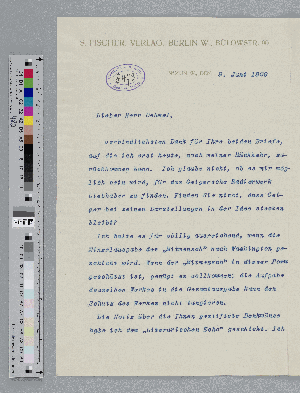 S. FISCHER, VERLAG, BERLIN W., BÜLOWSTR. 90
BERLIN W., DEN 9. Juni 1908
Lieber Herr Dehmel,
verbindlichsten Dank für Ihre beiden Briefe,
auf die ich erst heute, nach meiner Rückkehr, zu-
rückkommen kann. Ich glaube nicht, ob es mir mög-
lich sein wird, für das Geigersche Bilderwerk
Liebhaber zu finden. Finden Sie nicht, dass Gei-
ger bei seinen Darstellungen in der Idee stecken
bleibt?
Ich halte es für völlig ausreichend, wenn die
Einzelausgabe des „Mitmensch" nach Washington ge-
schickt wird. Wenn der „Mitmensch" in dieser Form
geschützt ist, genügt es vollkommen; die Aufgabe
desselben Werkes in die Gesamtausgabe kann den
Schutz des Werkes nicht tangieren.
Die Notiz über die Ihnen gestiftete Denkmünze
habe ich dem „Literarischen Echo" geschickt. Ich